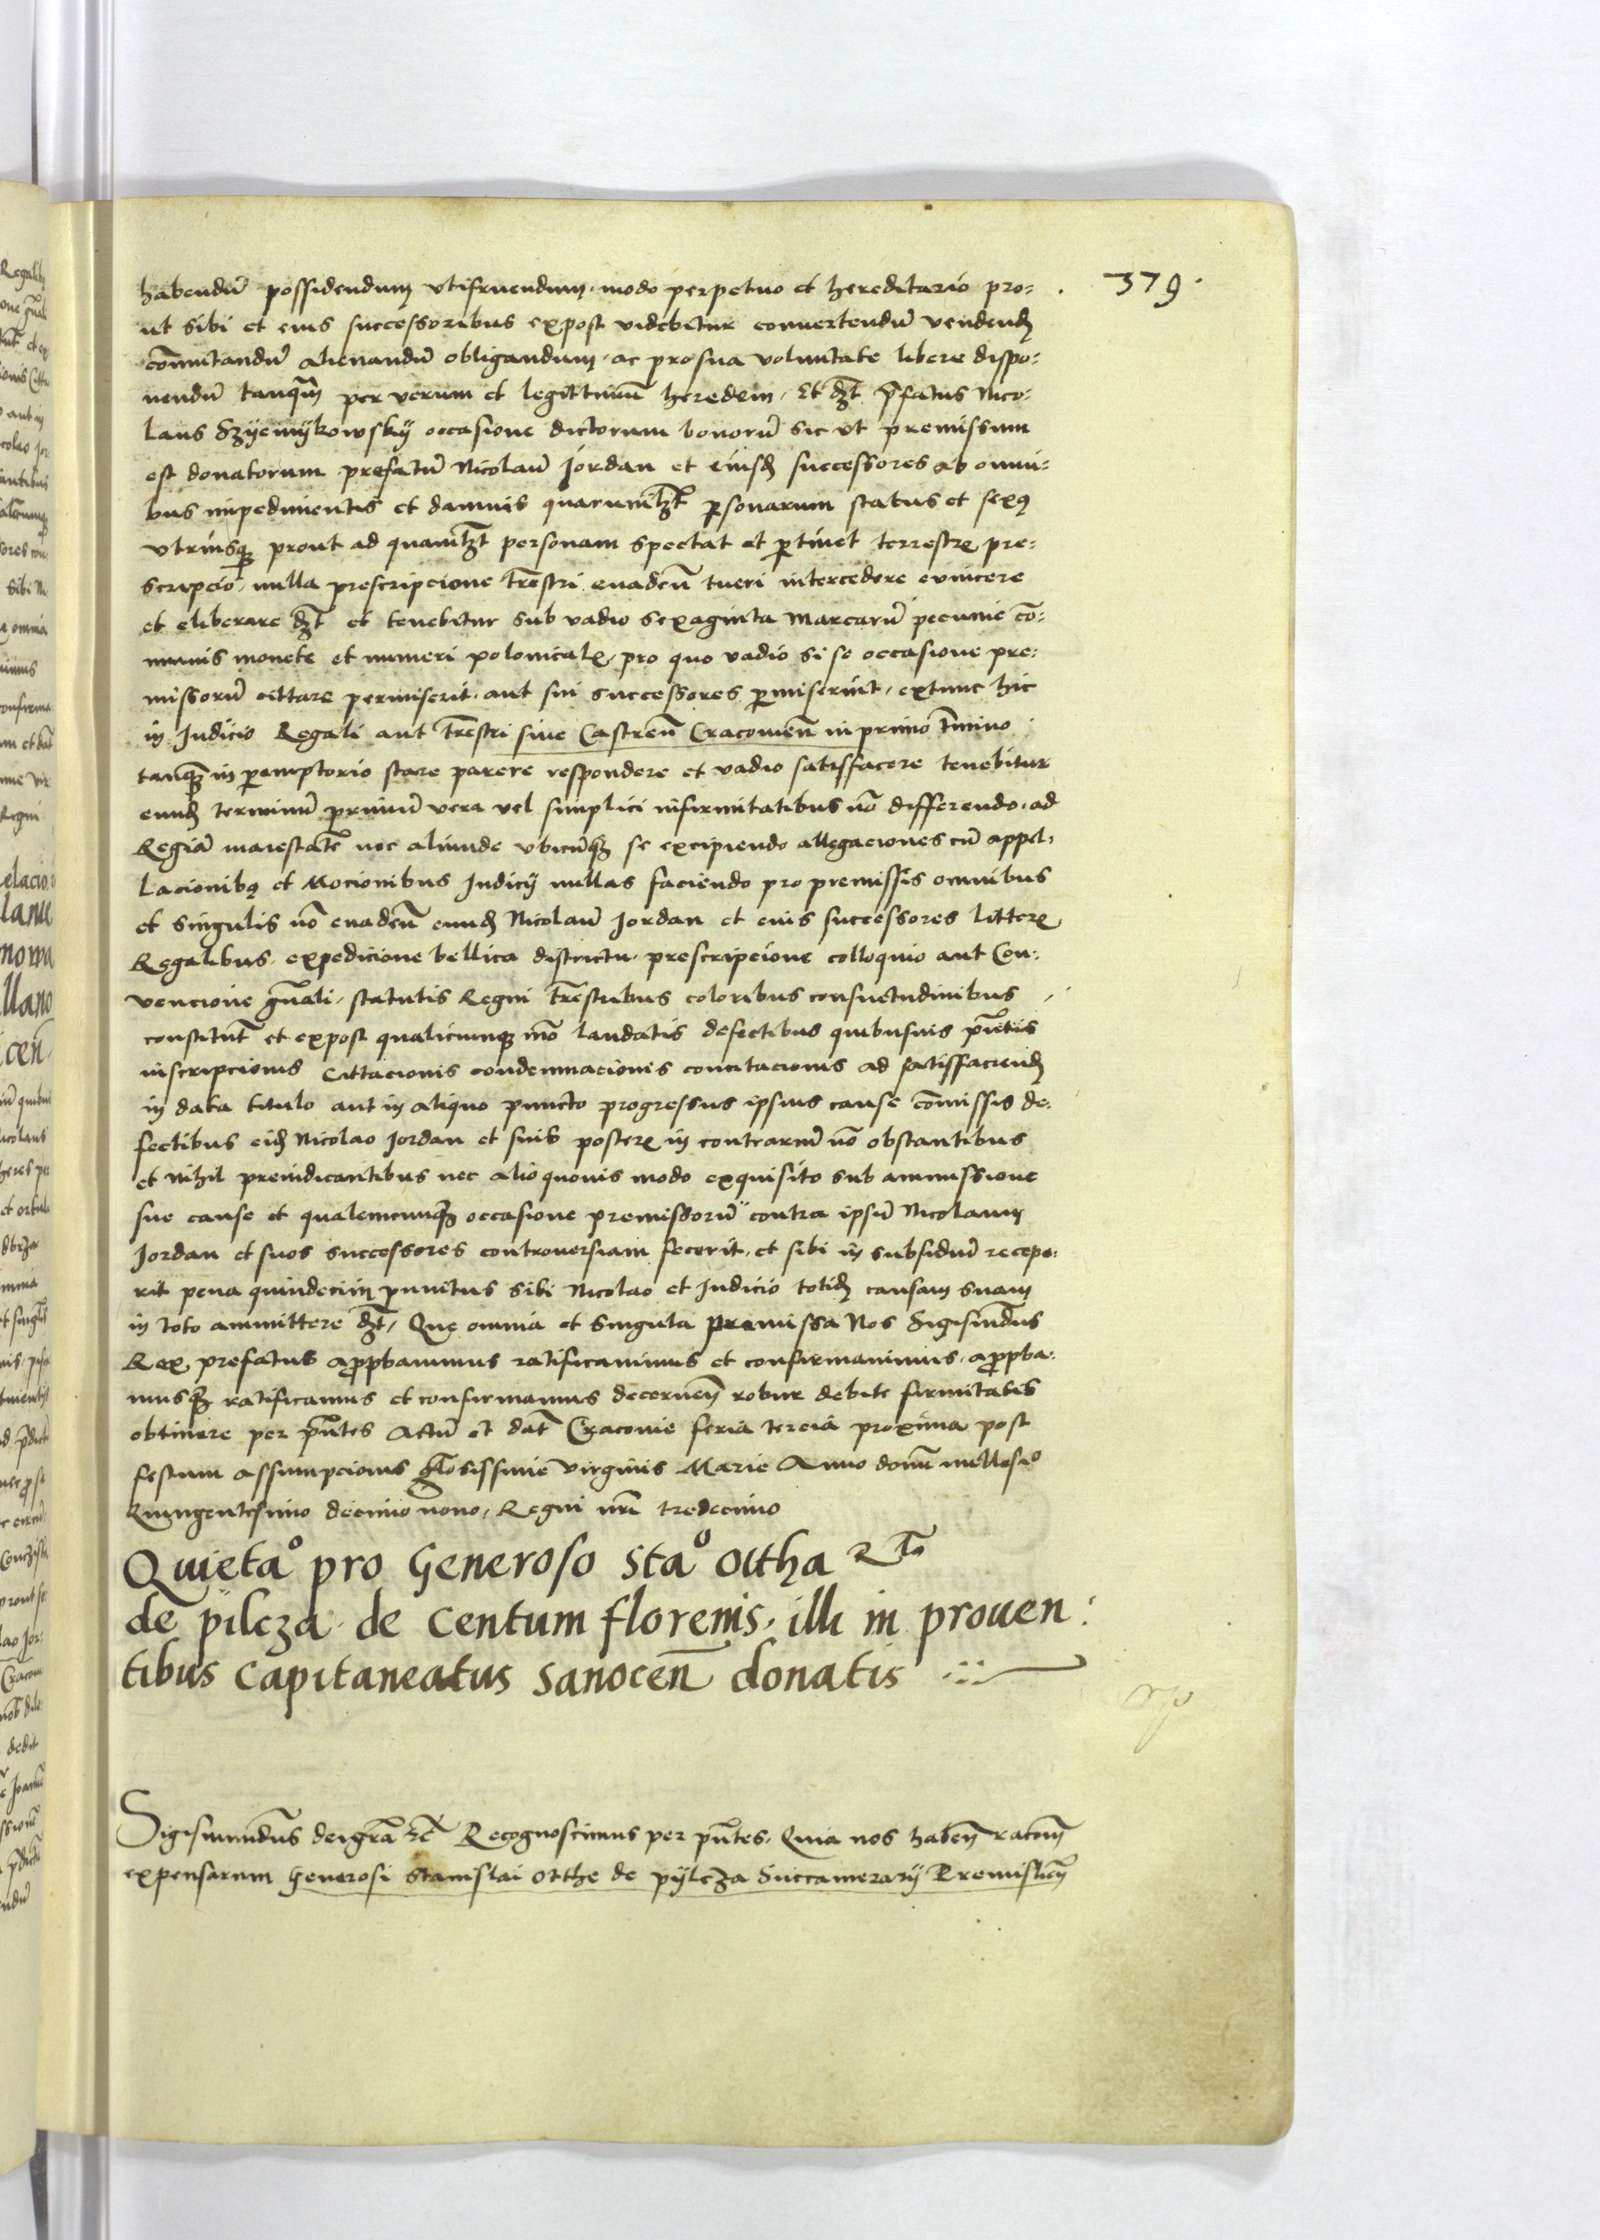 379.
habendū possidendum vtifruendum, modo perpetuo et hereditario pro-
ut sibi et eius successoribus expost videbitur conuertendū vendend
cōmutandū alienandū obligandum, ac pro sua voluntate libere dispo-
nendū tanqm per verum et legittimū heredem, Et dzt pfatus Nico-
laus Szyemykowskij occasione dictorum bonorū sic vt premissum
est donatorum prefatū Nicolaū Jordan et eiusd successores ab omni-
bus impedimentis et damnis quarumlzt psonarum status et sexq
vtriusq prout ad quamlzt personam spectat et ptinet terrestre pre-
scripcio, nulla prescripcione trestri euadeñ tueri intercedere euincere
et eliberare dzt et tenebitur sub vadio sexaginta Marcarū pecunie cō-
munis monete et numeri polonicalx, pro quo vadio si se occasione pre-
missorū cittare permiserit, aut sui successores pmiserint, extunc hic
in Judicio Regali aut Trestri siue Castreñ Cracouieñ in primo Tmino
tanqz in pemptorio stare parere respondere et vadio satisfacere tenebitur
eund terminū primū vera vel simplici infirmitatibus nō differendo, ad
Regiā maiestatē nec aliunde vbicūqz se excipiendo allegaciones cū appel-
lacionibq et Mocionibus Judicij nullas faciendo pro premissis omnibus
et singulis nō euadeñ eund Nicolaū Jordan et eius successores litterx
Regalibus, expedicione bellica districtu, prescripcione colloquio aut Con-
uencione gñali, statutis Regni trestribus coloribus consuetudinibus
constitut et expost qualicumqz mō laudatis defectibus quibusuis pñtis
inscripcionis Cittacionis condemnacionis concitacionis ad satisfaciend
in data titulo aut in aliquo puncto progressus ipsius cause cōmissis de-
fectibus eid Nicolao Jordan et suis posterx in contrariū nō obstantibus
et nihil preiudicantibus nec alio quouis modo exquisito sub ammissione
sue cause et qualemcunqz occasione premissorū contra ipsū Nicolaum
Jordan et suos successores controuersiam fecerit, et sibi in subsidiū recepe-
rit pena quindecim punctus sibi Nicolao et Judicio totid causam suam
in toto ammittere dzt, Que omnia et singula premissa Nos Sigismūdus
Rex prefatus appbauimus ratificauimus et confirmauimus, appba-
musqz ratificamus et confirmamus decerneñ robur debite firmitatis
obtinere per pñtes Actū et dat Cracouie feria tercia proxima post
festum assumpcionis glosissime virginis Marie Anno domī millesio
Quingentesimo decimo nono, Regni nri tredecimo
Quietao pro Generoso Stao Ottha
de pilcza de Centum florenis, illi in prouen-
tibus Capitaneatus Sanoceñ donatis
Sigismundus dei gra etc Recognoscimus per pñtes, Quia nos habeñ racom
expensarum Generosi Stanislai Otthe de pylcza Succamerarij Premislieñ